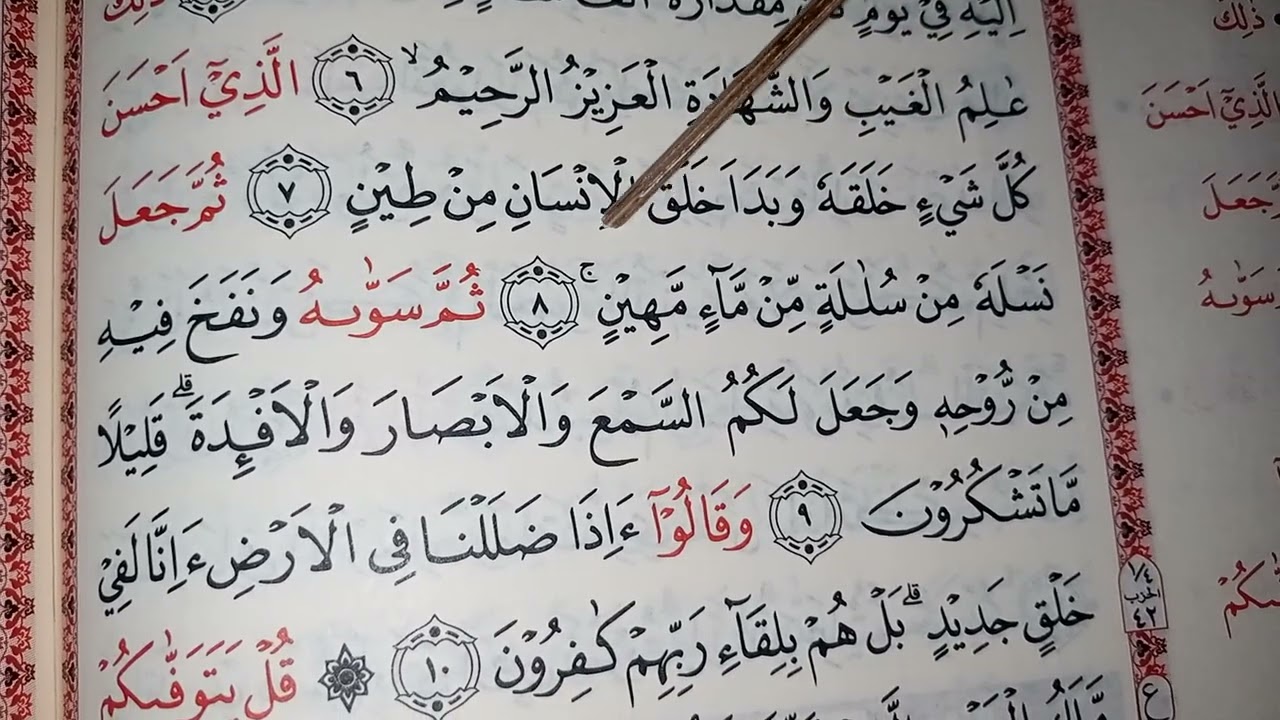 اِلَيْهِ فِيْ يَوْمٍ مِقْدَارُهٗٓ اَلْفَ ذٰلِكَ
عٰلِمُ الْغَيْبِ وَالشَّهَادَةِ الْعَزِيْزُ الرَّحِيْمُۙ ٦ الَّذِيْٓ اَحْسَنَ
كُلَّ شَيْءٍ خَلَقَهٗ وَبَدَاَ خَلْقَ الْاِنْسَانِ مِنْ طِيْنٍ ٧ ثُمَّ جَعَلَ
نَسْلَهٗ مِنْ سُلٰلَةٍ مِّنْ مَّاۤءٍ مَّهِيْنٍۚ ٨ ثُمَّ سَوّٰىهُ وَنَفَخَ فِيْهِ
مِنْ رُّوْحِهٖ وَجَعَلَ لَكُمُ السَّمْعَ وَالْاَبْصَارَ وَالْاَفْـِٕدَةَۗ قَلِيْلًا
مَّا تَشْكُرُوْنَ ٩ وَقَالُوْٓا ءَاِذَا ضَلَلْنَا فِى الْاَرْضِ ءَاِنَّا لَفِيْ
خَلْقٍ جَدِيْدٍۗ بَلْ هُمْ بِلِقَاۤءِ رَبِّهِمْ كٰفِرُوْنَ ١٠ ۞ قُلْ يَتَوَفّٰىكُمْ
ذٰلِكَ
الَّذِيْٓ اَحْسَنَ
جَعَلَ
سَوّٰىهُ
١/٤
الحزب
٤٢
ع